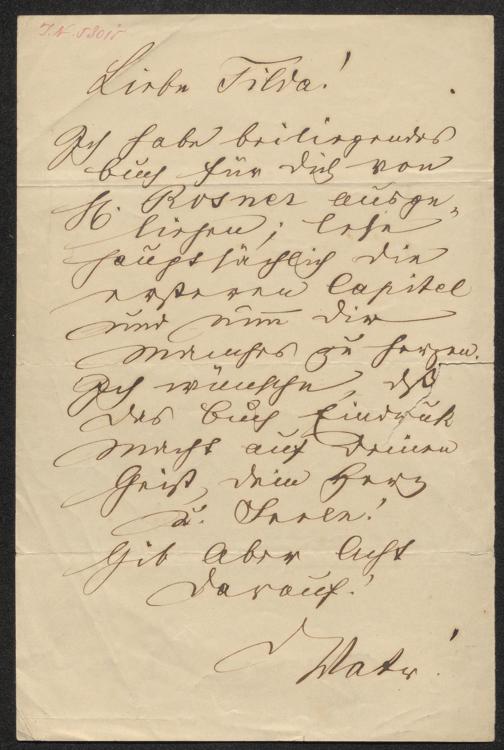 I.N. 53015
Liebe Tilda!
Ich habe beiliegendes
Buch für dich von
H. Rosner ausge-
liehen; lese
hauptsächlich die
ersteren Capitel
und nimm dir
manches zu Herzen.
Ich wünsche, daß
das Buch Eindruk
macht auf deinen
Geist, dein Herz
u. Seele!
Gib aber Acht
darauf!
Vater!